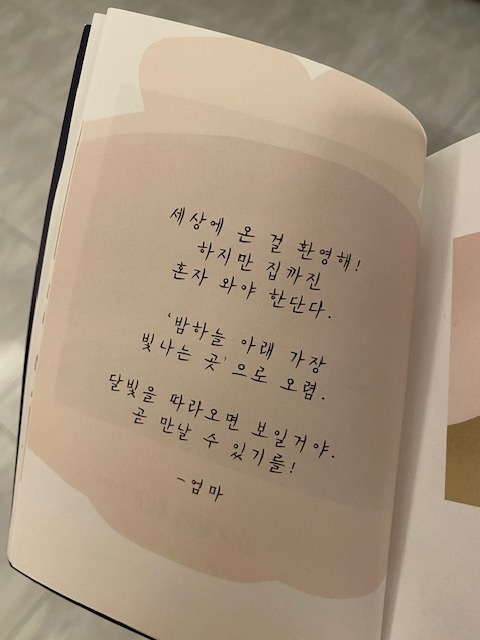 세상에 온 걸 환영해!
하지만 집까진
혼자 와야 한단다.
'밤하늘 아래 가장
빛나는 곳'으로 오렴.
달빛을 따라오면 보일거야.
곧 만날 수 있기를!
-엄마